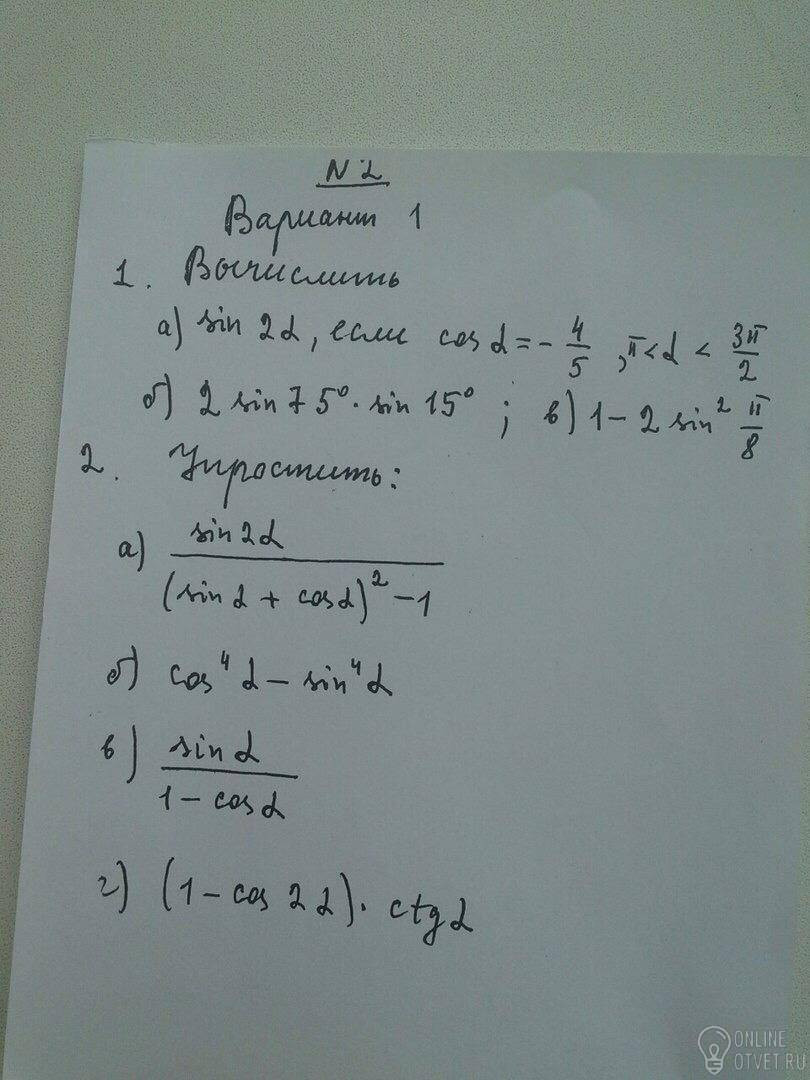 N 2
Вариант 1
1. Вычислить
а) sin 2α, если cos α = - 4/5, π < α < 3π/2
б) 2 sin 75° · sin 15° ; в) 1 - 2 sin² π/8
2. Упростить:
а) sin 2α / (sin α + cos α)² - 1
б) cos⁴ α - sin⁴ α
в) sin α / 1 - cos α
г) (1 - cos 2α) · ctg α
ONLINE
OTVET.RU